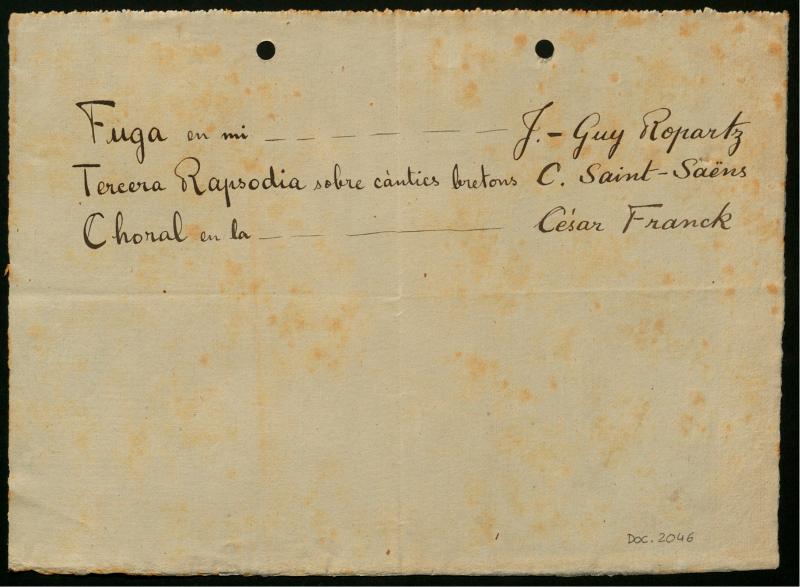 Fuga en mi — — — — — — J.- Guy Ropartz
Tercera Rapsodia sobre càntics bretons C. Saint-Saëns
Choral en la — — — — César Franck
Doc. 2046